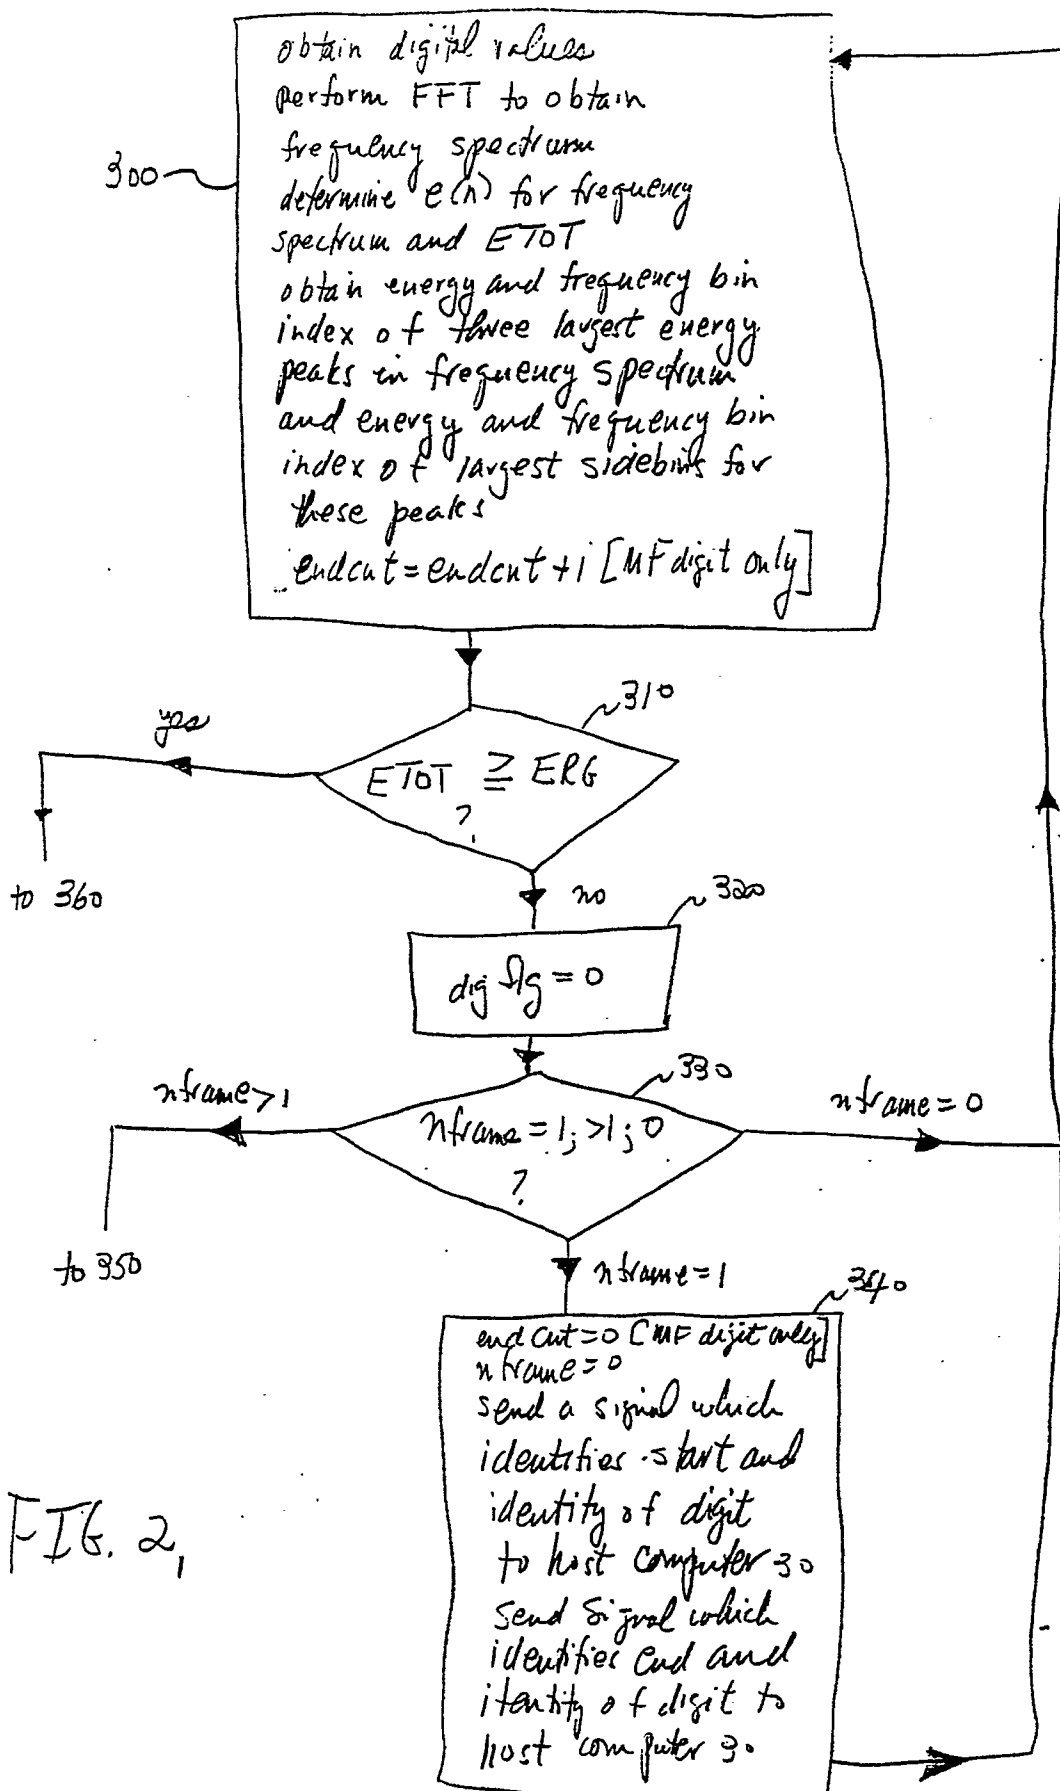 obtain digital values
perform FFT to obtain
frequency spectrum
300
determine e(n) for frequency
spectrum and ETOT
obtain energy and frequency bin
index of three largest energy
peaks in frequency spectrum
and energy and frequency bin
index of largest sidebins for
these peaks
endcnt = endcnt + 1 [MF digit only]
310
yes
ETOT ≧ ERG
?
to 360
no
320
digflg = 0
330
nframe > 1
nframe = 0
nframe = 1; >1; 0
?
to 350
nframe = 1
340
endcnt = 0 [MF digit only]
nframe = 0
send a signal which
identifies start and
identity of digit
to host computer 30
send signal which
identifies end and
itentity of digit to
host computer 30
FIG. 2,